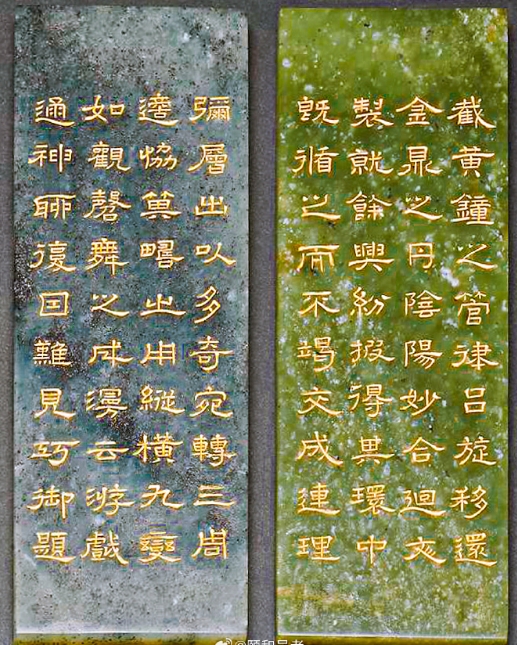 截黄鐘之管律呂旋移還
金鼎之丹陰陽妙合迴文
製就餘興紛掇得其環中
既循之而不竭交成連理
彌層出以多奇宛轉三周
適協箕疇之用縱横九變
如觀磬舞之成漫云游戲
通神聊復因難見巧御題
@颐和吴老